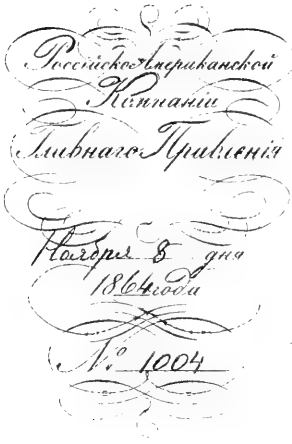 Россійско Американской
Компаніи
Главнаго Правленія
Ноября 8 дня
1864 года
№ 1004